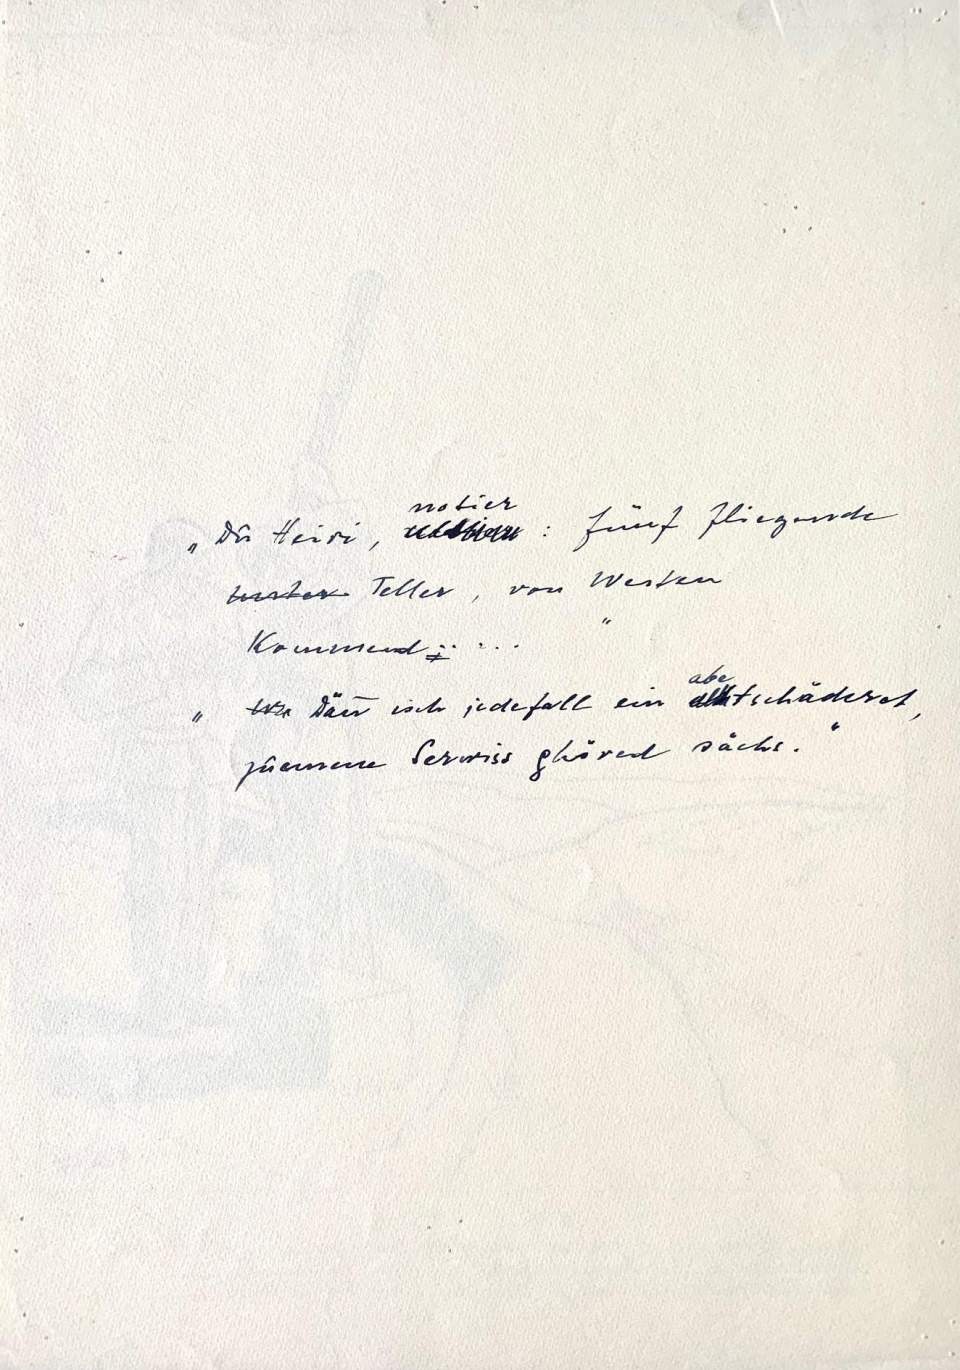 „Dū Heiri, notier : fünf fliegende
Teller, von Westen
Kommend ..."
„Dänn isch jedefall ein abetschäderet,
zuemene Serviss ghöred sächs."